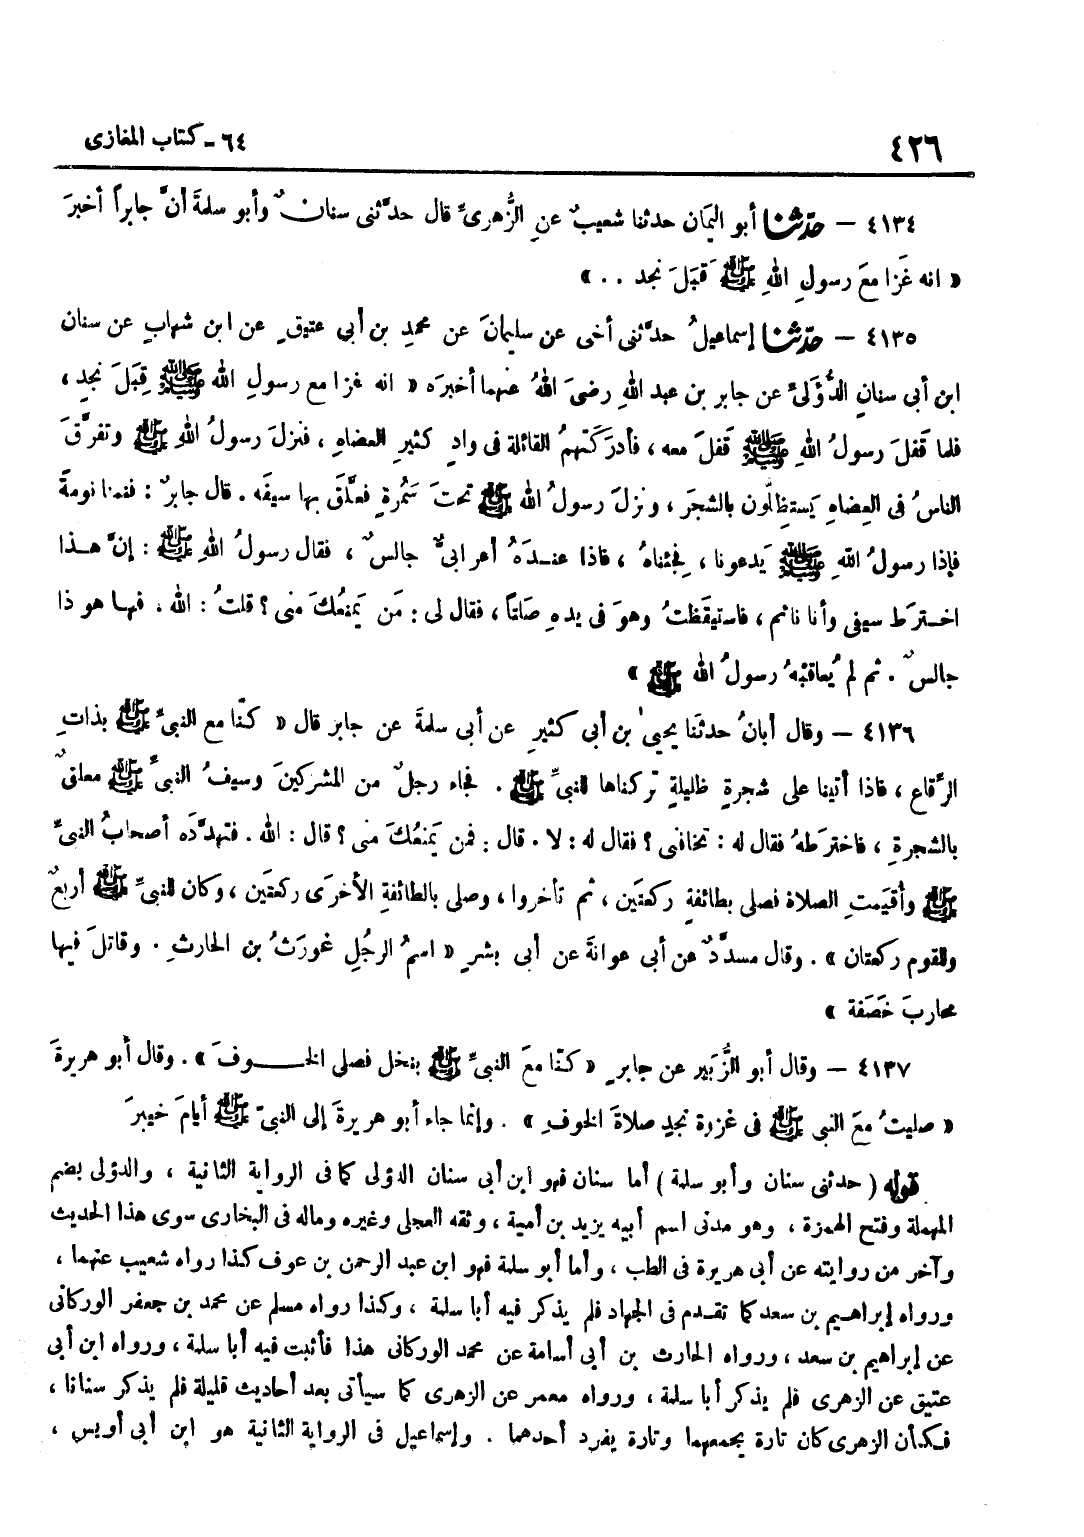 ٤٢٦ ٦٤ - كتاب المغازى
٤١٣٤ - حدّثنا أبو اليمان حدثنا شعيبٌ عنِ الزُّهرىِّ قال حدَّثنى سنانٌ وأبو سلمةَ أنَّ جابراً أخبرَ
« انه غَزا معَ رسولِ اللهِ ﷺ قِبَلَ نجد . . »
٤١٣٥ - حدّثنا إسماعيلُ حدَّثنى أخى عن سليمانَ عن محمدِ بن أبي عتيقٍ عن ابن شهابٍ عن سنان
ابن أبى سنانٍ الدُّؤَلىِّ عن جابر بن عبد اللهِ رضىَ اللهُ عنهما أخبرَه « انه غزا مع رسولِ الله ﷺ قِبَلَ نجدٍ ،
فلما قَفلَ رسولُ اللهِ ﷺ قَفلَ معه ، فأدرَكَتهمُ القائلة فى وادٍ كثيرِ العضاهِ ، فنزلَ رسولُ اللهِ ﷺ وتفرَّقَ
الناسُ فى العِضاهِ يَستظِلُّون بالشجَر ، ونزلَ رسولُ الله ﷺ تحتَ سَمُرةٍ فعلَّقَ بها سيفَه . قال جابرٌ : فنمنا نومةً
فإذا رسولُ اللهِ ﷺ يَدعونا ، فجِئناهُ ، فاذا عنـدَهُ أعرابىٌّ جالسٌ ، فقال رسولُ اللهِ ﷺ : إنَّ هـذا
اخـترَط سيفى وأنا نائم ، فاستيقَظتُ وهوَ فى يدهِ صَلتاً ، فقال لى : مَن يَمنعُكَ منى ؟ قلتُ : الله . فهـا هو ذا
جالسٌ . ثم لم يُعاقبْهُ رسولُ الله ﷺ »
٤١٣٦ - وقال أبانُ حدثَنا يحيىٰ بن أبى كثيرٍ عن أبى سلمةَ عن جابر قال « كنّا مع النبىِّ ﷺ بذاتِ
الرِّقاع ، فاذا أتينا على شجرةٍ ظليلةٍ تركناها للنبىِّ ﷺ . فجاء رجلٌ من المشركينَ وسيفُ النبىِّ ﷺ معلقٌ
بالشجرةِ ، فاخترَطهُ فقال له : تخافنى ؟ فقال له : لا . قال : فمن يَمنعُكَ منى ؟ قال : الله . فتهدَّدَه أصحابُ النبىِّ
ﷺ وأُقيمَتِ الصلاة فصلى بطائفةٍ ركعتَين ، ثم تأخروا ، وصلى بالطائفةِ الأخرَى ركعتَين ، وكان للنبىِّ ﷺ أربعٌ
وللقوم ركعتان » . وقال مسدَّدٌ عن أبى عوانةَ عن أبى بشرٍ « اسمُ الرجُلِ غَورَثُ بن الحارثِ . وقاتلَ فيها
محاربَ خَصَفة »
٤١٣٧ - وقال أبو الزُّبَير عن جابرٍ « كنّا معَ النبىِّ ﷺ بنخل فصلى الخـــوفَ » . وقال أبو هريرةَ
« صليتُ معَ النبى ﷺ فى غزوة نجدٍ صلاةَ الخوفِ » . وإنما جاء أبو هريرةَ إلى النبىّ ﷺ أيامَ خيبرَ
قوله ( حدثنى سنان وأبو سلمة ) أما سنان فهو ابن أبى سنان الدؤلى كما فى الرواية الثانية ، والدؤلى بضم
المهملة وفتح الهمزة ، وهو مدنى اسم أبيه يزيد بن أمية ، وثقه العجلى وغيره وماله فى البخارى سوى هذا الحديث
وآخر من روايته عن أبى هريرة فى الطب ، وأما أبو سلمة فهو ابن عبد الرحمن بن عوف كذا رواه شعيب عنهما ،
ورواه إبراهـيم بن سعد كما تقـدم فى الجهاد فلم يذكر فيه أبا سلمة ، وكذا رواه مسلم عن محمد بن جعفر الوركانى
عن إبراهيم بن سعد ، ورواه الحارث بن أبى أسامة عن محمد الوركانى هذا فأثبت فيه أبا سلمة ، ورواه ابن أبى
عتيق عن الزهرى فلم يذكر أبا سلمة ، ورواه معمر عن الزهرى كما سيأتى بعد أحاديث قليلة فلم يذكر سنانا ،
فـكـأن الزهرى كان تارة يجمعهما وتارة يفرد أحدهما . وإسماعيل فى الرواية الثانية هو ابن أبى أويس ،